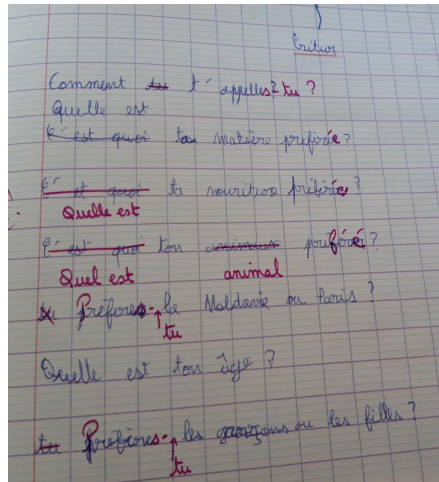 Comment tu t'appelles-tu ?
Quelle est
C'est quoi ta matière préférée ?
C'est quoi ta nourition préférée ?
Quelle est
C'est quoi ton préféré ?
Quel est animal
tu Préfères-la Moldavie ou Paris ?
tu
Quelle est ton âge ?
tu Préfères-les garçons ou les filles ?
tu